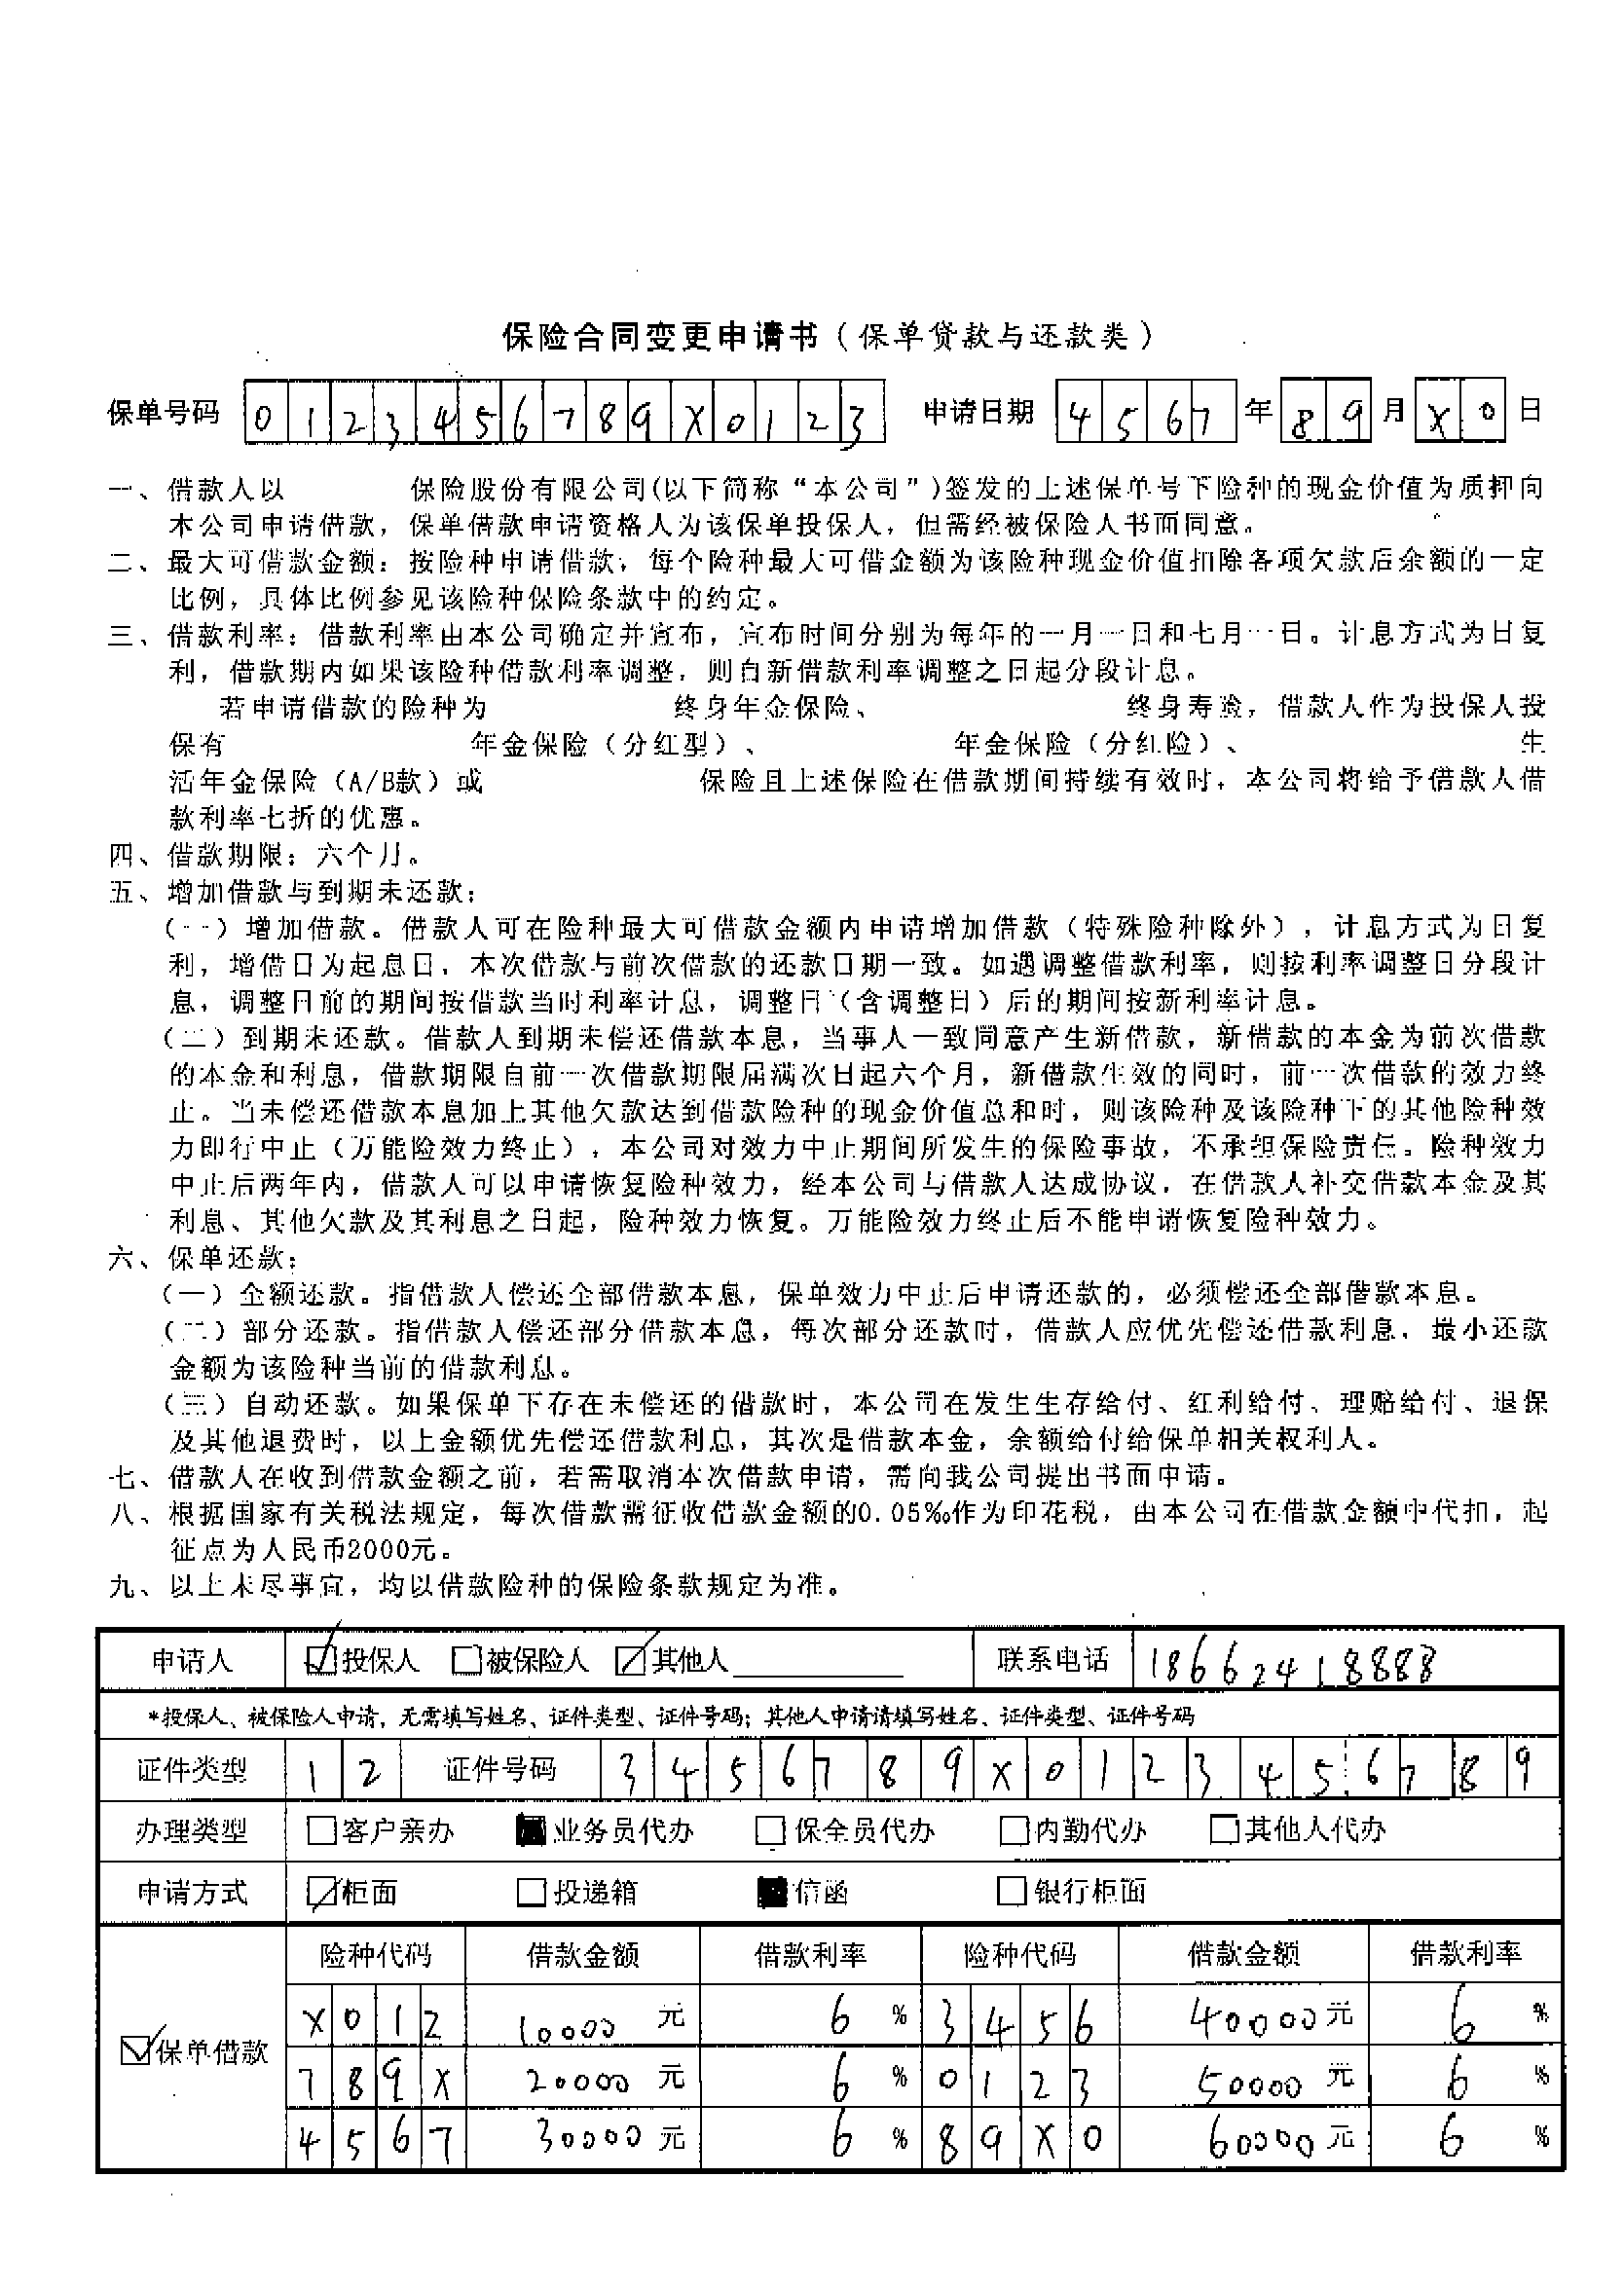 保险合同变更申请书（保单贷款与还款类）
保单号码 0123456789X0123 申请日期 4567 年 89 月 X0 日
一、借款人以 保险股份有限公司(以下简称“本公司”)签发的上述保单号下险种的现金价值为质押向
本公司申请借款，保单借款申请资格人为该保单投保人，但需经被保险人书面同意。
二、最大可借款金额：按险种申请借款，每个险种最大可借金额为该险种现金价值扣除各项欠款后余额的一定
比例，具体比例参见该险种保险条款中的约定。
三、借款利率：借款利率由本公司确定并宣布，宣布时间分别为每年的一月一日和七月一日。计息方式为日复
利，借款期内如果该险种借款利率调整，则自新借款利率调整之日起分段计息。
若申请借款的险种为 终身年金保险、 终身寿险，借款人作为投保人投
保有 年金保险（分红型）、 年金保险（分红险）、 生
活年金保险（A/B款）或 保险且上述保险在借款期间持续有效时，本公司将给予借款人借
款利率七折的优惠。
四、借款期限：六个月。
五、增加借款与到期未还款：
（一）增加借款。借款人可在险种最大可借款金额内申请增加借款（特殊险种除外），计息方式为日复
利，增借日为起息日，本次借款与前次借款的还款日期一致。如遇调整借款利率，则按利率调整日分段计
息，调整日前的期间按借款当时利率计息，调整日（含调整日）后的期间按新利率计息。
（二）到期未还款。借款人到期未偿还借款本息，当事人一致同意产生新借款，新借款的本金为前次借款
的本金和利息，借款期限自前一次借款期限届满次日起六个月，新借款生效的同时，前一次借款的效力终
止。当未偿还借款本息加上其他欠款达到借款险种的现金价值总和时，则该险种及该险种下的其他险种效
力即行中止（万能险效力终止），本公司对效力中止期间所发生的保险事故，不承担保险责任。险种效力
中止后两年内，借款人可以申请恢复险种效力，经本公司与借款人达成协议，在借款人补交借款本金及其
利息、其他欠款及其利息之日起，险种效力恢复。万能险效力终止后不能申请恢复险种效力。
六、保单还款：
（一）全额还款。指借款人偿还全部借款本息，保单效力中止后申请还款的，必须偿还全部借款本息。
（二）部分还款。指借款人偿还部分借款本息，每次部分还款时，借款人应优先偿还借款利息，最小还款
金额为该险种当前的借款利息。
（三）自动还款。如果保单下存在未偿还的借款时，本公司在发生生存给付、红利给付、理赔给付、退保
及其他退费时，以上金额优先偿还借款利息，其次是借款本金，余额给付给保单相关权利人。
七、借款人在收到借款金额之前，若需取消本次借款申请，需向我公司提出书面申请。
八、根据国家有关税法规定，每次借款需征收借款金额的0.05‰作为印花税，由本公司在借款金额中代扣，起
征点为人民币2000元。
九、以上未尽事宜，均以借款险种的保险条款规定为准。
申请人 ☑投保人 □被保险人 ☑其他人 联系电话 18662418888
*投保人、被保险人申请，无需填写姓名、证件类型、证件号码；其他人申请请填写姓名、证件类型、证件号码
证件类型 12 证件号码 3456789X0123456789
办理类型 □客户亲办 ■业务员代办 □保全员代办 □内勤代办 □其他人代办
申请方式 ☑柜面 □投递箱 ■信函 □银行柜面
险种代码 借款金额 借款利率 险种代码 借款金额 借款利率
X012 10000 元 6 % 3456 40000 元 6 %
☑保单借款
789X 20000 元 6 % 0123 50000 元 6 %
4567 30000 元 6 % 89X0 60000 元 6 %